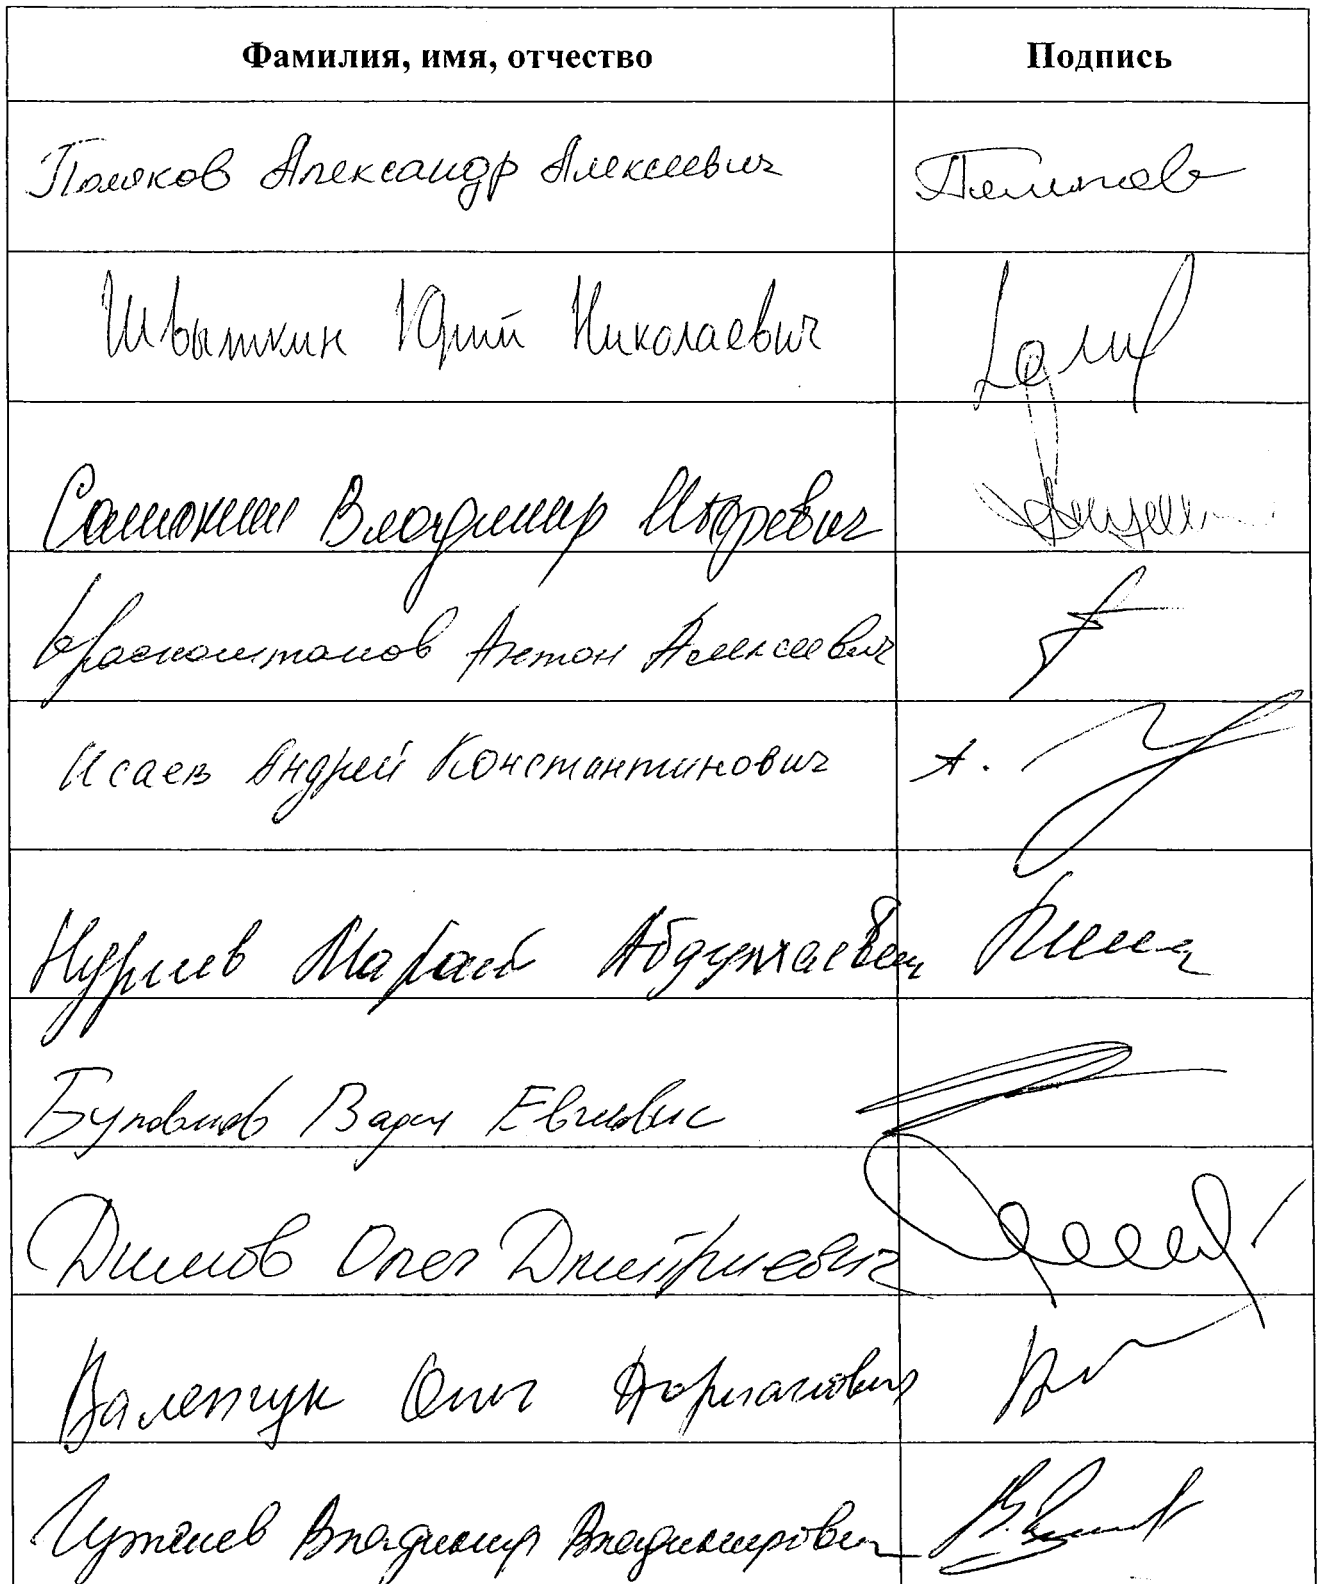 Фамилия, имя, отчество Подпись
Поляков Александр Алексеевич
Швыткин Юрий Николаевич
Самокиш Владимир Игоревич
Красноштанов Антон Алексеевич
Исаев Андрей Константинович
Нуриев Марат Абдулхаевич
Буловинов Вадим Евгеньевич
Димов Олег Дмитриевич
Валенчук Олег Дорианович
Гутенев Владимир Владимирович